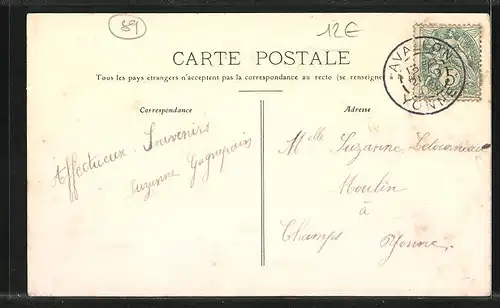 89
12€
CARTE POSTALE
Tous les pays étrangers n'acceptent pas la correspondance au recto (se renseigne
Correspondance
Adresse
AVALLON
YONNE
5
Affectueux Souvenirs
Suzanne Gagnepain
Melle Suzanne Letourneau
Moulin
à
Champs Yonne.